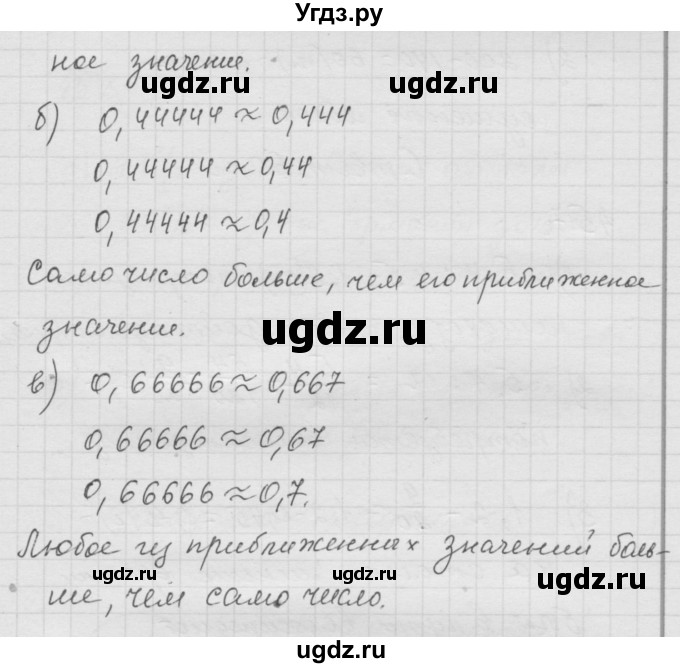 Угдз.ру
ное значение.
ugdz.ru ugdz.ru
б) 0,44444 ≈ 0,444
0,44444 ≈ 0,44
ugdz.ru ugdz.ru
0,44444 ≈ 0,4
Само число больше, чем его приближенное
значение.
ugdz.ru ugdz.ru
в) 0,66666 ≈ 0,667
0,66666 ≈ 0,67
ugdz.ru ugdz.ru
0,66666 ≈ 0,7.
Любое из приближенных значений боль-
ugdz.ru ugdz.ru ugdz.ru
ше, чем само число.
ugdz.ru